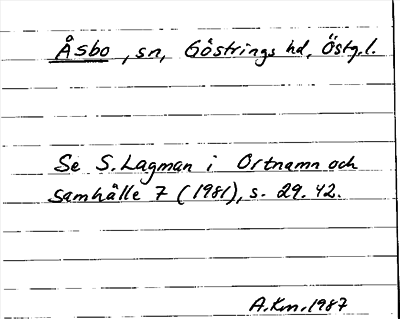 Åsbo, sn, Göstrings hd, Östg.l.
Se S. Lagman i Ortnamn och
samhälle 7 (1981), s. 29. 42.
A.Km.1987